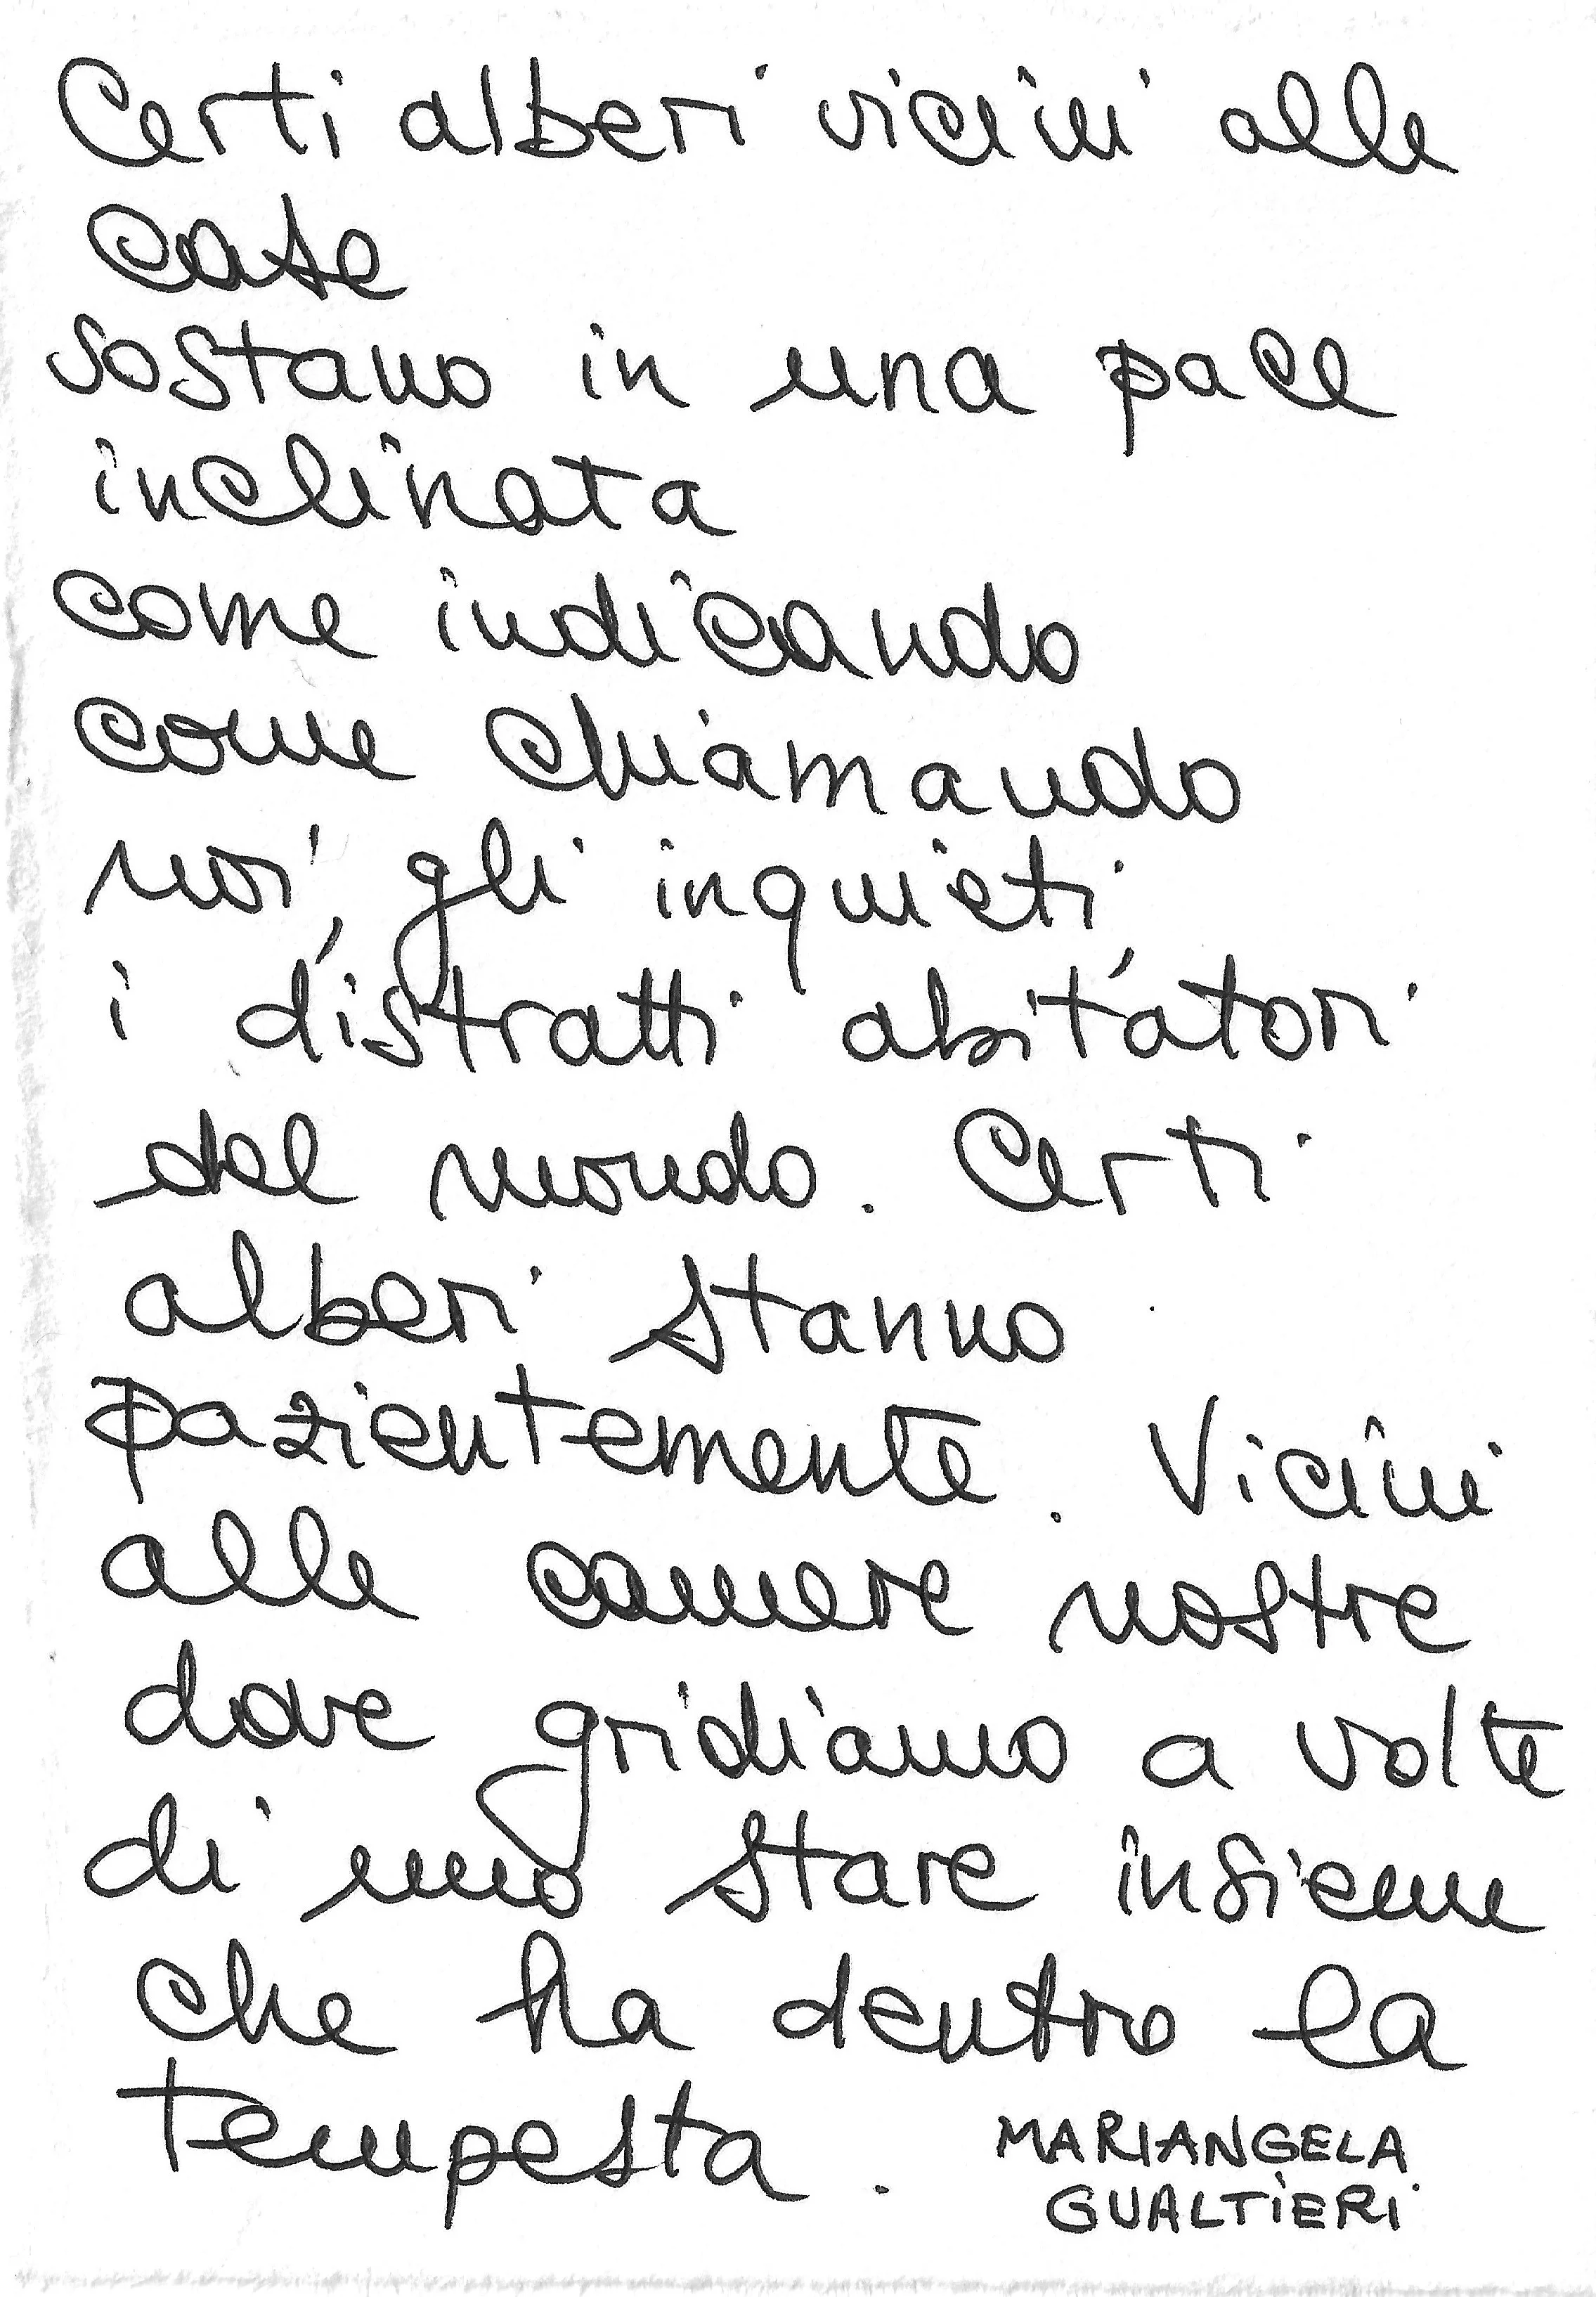 Certi alberi vicini alle
case
sostano in una pace
inclinata
come indicando
come chiamando
noi, gli inquieti,
i distratti abitatori
del mondo. Certi
alberi stanno
pazientemente. Vicini
alle camere nostre
dove gridiamo a volte
di uno stare insieme
che ha dentro la
tempesta.
MARIANGELA
GUALTIERI